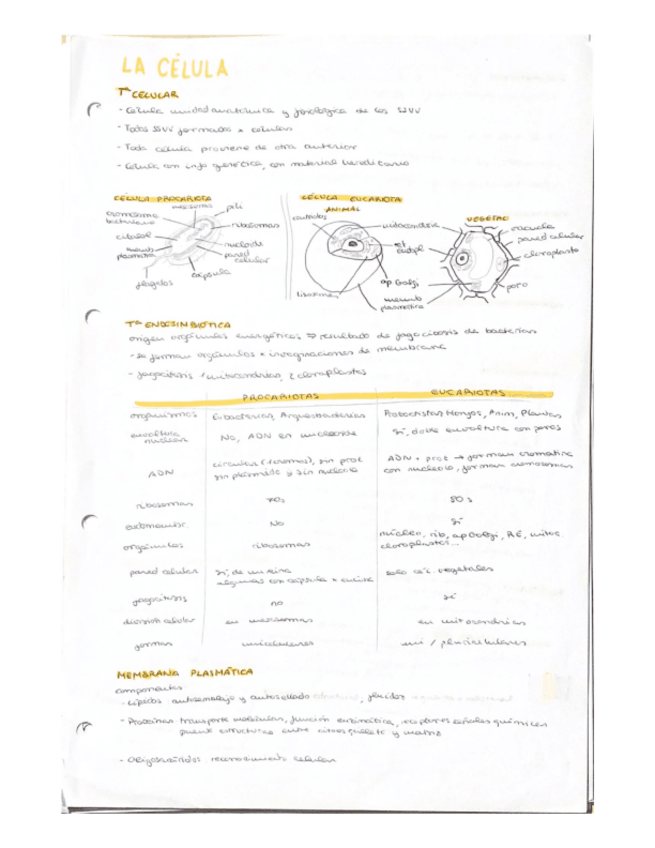 LA CÉLULA
Tª CELULAR
- Célula unidad anatómica y fisiológica de los SSVV
- Todos SSVV formados x células
- Toda célula proviene de otra anterior
- Célula con info genética, con material hereditario
CÉLULA PROCARIOTA
mesosoma
pili
cromosoma bacteriano
ribosomas
citosol
nucleoide
memb plasmática
pared celular
cápsula
flagelos
CÉLULA EUCARIOTA
ANIMAL
VEGETAL
mitocondria
vacuola
pared celular
ret endopl
cloroplasto
ap Golgi
poro
lisosomas
membr plasmática
Tª ENDOSIMBIÓTICA
origen orgánulos energéticos => resultado de fagocitosis de bacterias
- se forman orgánulos x invaginaciones de membrana
- fagocitosis 1 mitocondrias, 2 cloroplastos
PROCARIOTAS EUCARIOTAS
organismos Eubacterias, Arqueobacterias Protoctistas, Hongos, Anim, Plantas
envoltura nuclear No, ADN en nucleoide Sí, doble envoltura con poros
ADN circular (1 cromos), sin prot ADN + prot → forman cromatina
sin nucleolo con nucleolo, forman cromosomas
ribosomas 70s 80s
No Sí
orgánulos ribosomas núcleo, rib, ap Golgi, RE, mitoc
cloroplastos...
pared celular sí, de mureína solo cél. vegetales
algunas con cápsula
fagocitosis no sí
división celular en mesosomas en mitocondrias
formas unicelulares uni / pluricelulares
MEMBRANA PLASMÁTICA
componentes
- Lípidos autoensamblaje y autosellado, fluidez
- Proteínas transporte moléculas, función enzimática, receptores señales químicas
puente estructuras entre citoesqueleto y matriz
- Oligosacáridos reconocimiento celular